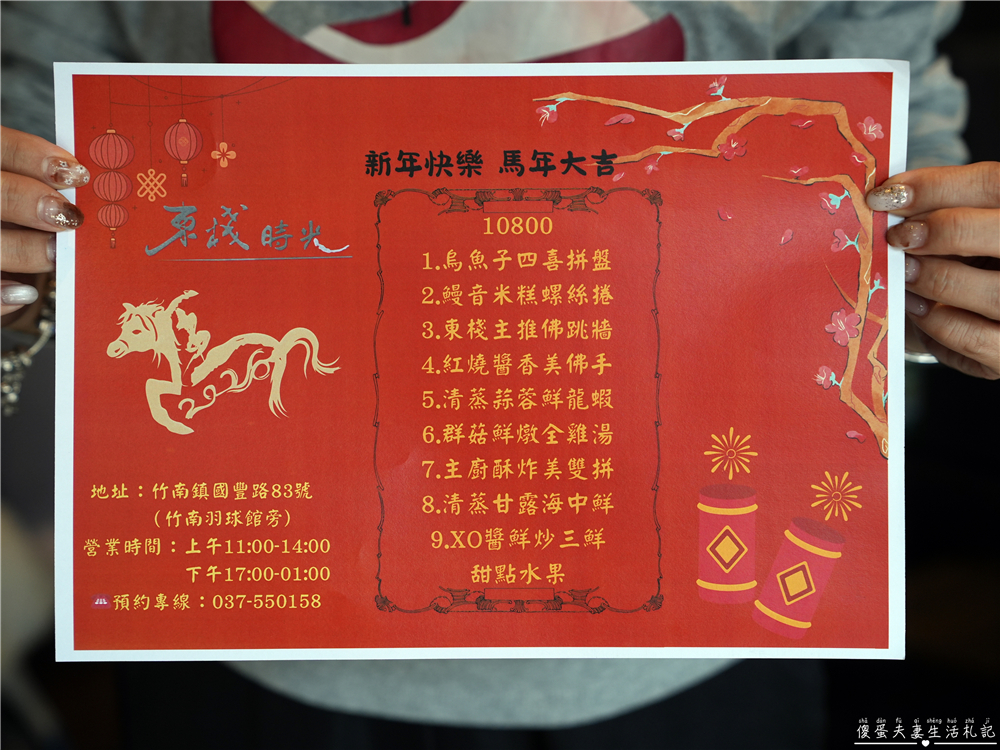 新年快樂 馬年大吉
東棧時光
10800
1.烏魚子四喜拼盤
2.鰻音米糕螺絲捲
3.東棧主推佛跳牆
4.紅燒醬香美佛手
5.清蒸蒜蓉鮮龍蝦
6.群菇鮮燉全雞湯
7.主廚酥炸美雙拼
8.清蒸甘露海中鮮
9.XO醬鮮炒三鮮
甜點水果
地址：竹南鎮國豐路83號
(竹南羽球館旁)
營業時間：上午11:00-14:00
下午17:00-01:00
預約專線：037-550158
shǎ dàn fū qī shēng huó zhá jì
傻蛋夫妻生活札記